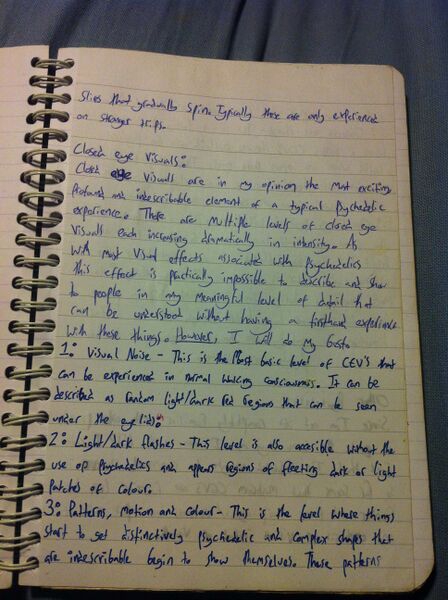 slies that gradually spin. Typically these are only experienced
on stronger trips.
Closed eye visuals:
Closed eye visuals are in my opinion the most exciting
profound and indescribable element of a typical Psychedelic
experience. There are multiple levels of closed eye
visuals each increasing dramatically in intensity. As
with most visual effects associated with Psychedelics
this effect is practically impossible to describe and show
to people in any meaningful level of detail that
can be understood without having a firsthand experience
with these things. However, I will do my best.
1: Visual Noise - This is the Most basic level of CEV's that
can be experienced in normal waking consciousness. It can be
described as random light/dark red regions that can be seen
under the eye lids.
2: Light/dark flashes - This level is also accesible without the
use of Psychedelics and appears regions of fleeting dark or light
patches of colour.
3: Patterns, motion and colour - This is the level where things
start to get distinctively psychedelic and complex shapes that
are indescribable begin to show themselves. These patterns